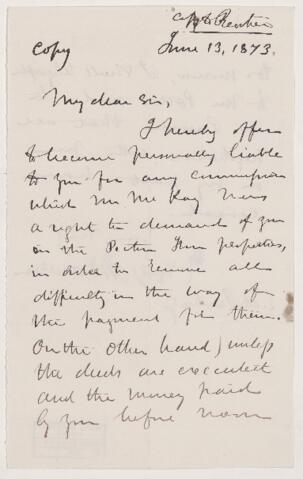 copy
June 13, 1873.
My dear Sir,
I hereby offer
to become personally liable
to you for any commission
which Mr McKay has
a right to demand of you
on the Porter farm properties,
in order to remove all
difficulty in the way of
the payment for them.
On the other hand, unless
the deeds are executed
and the money paid
by you before noon